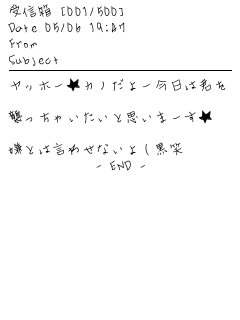 受信箱 [001/500]
Date 05/06 19:47
From
Subject
ヤッホー★カノだよー今日は君を
襲っちゃいたいと思いまーす★
嫌とは言わせないよ(黒笑
- END -